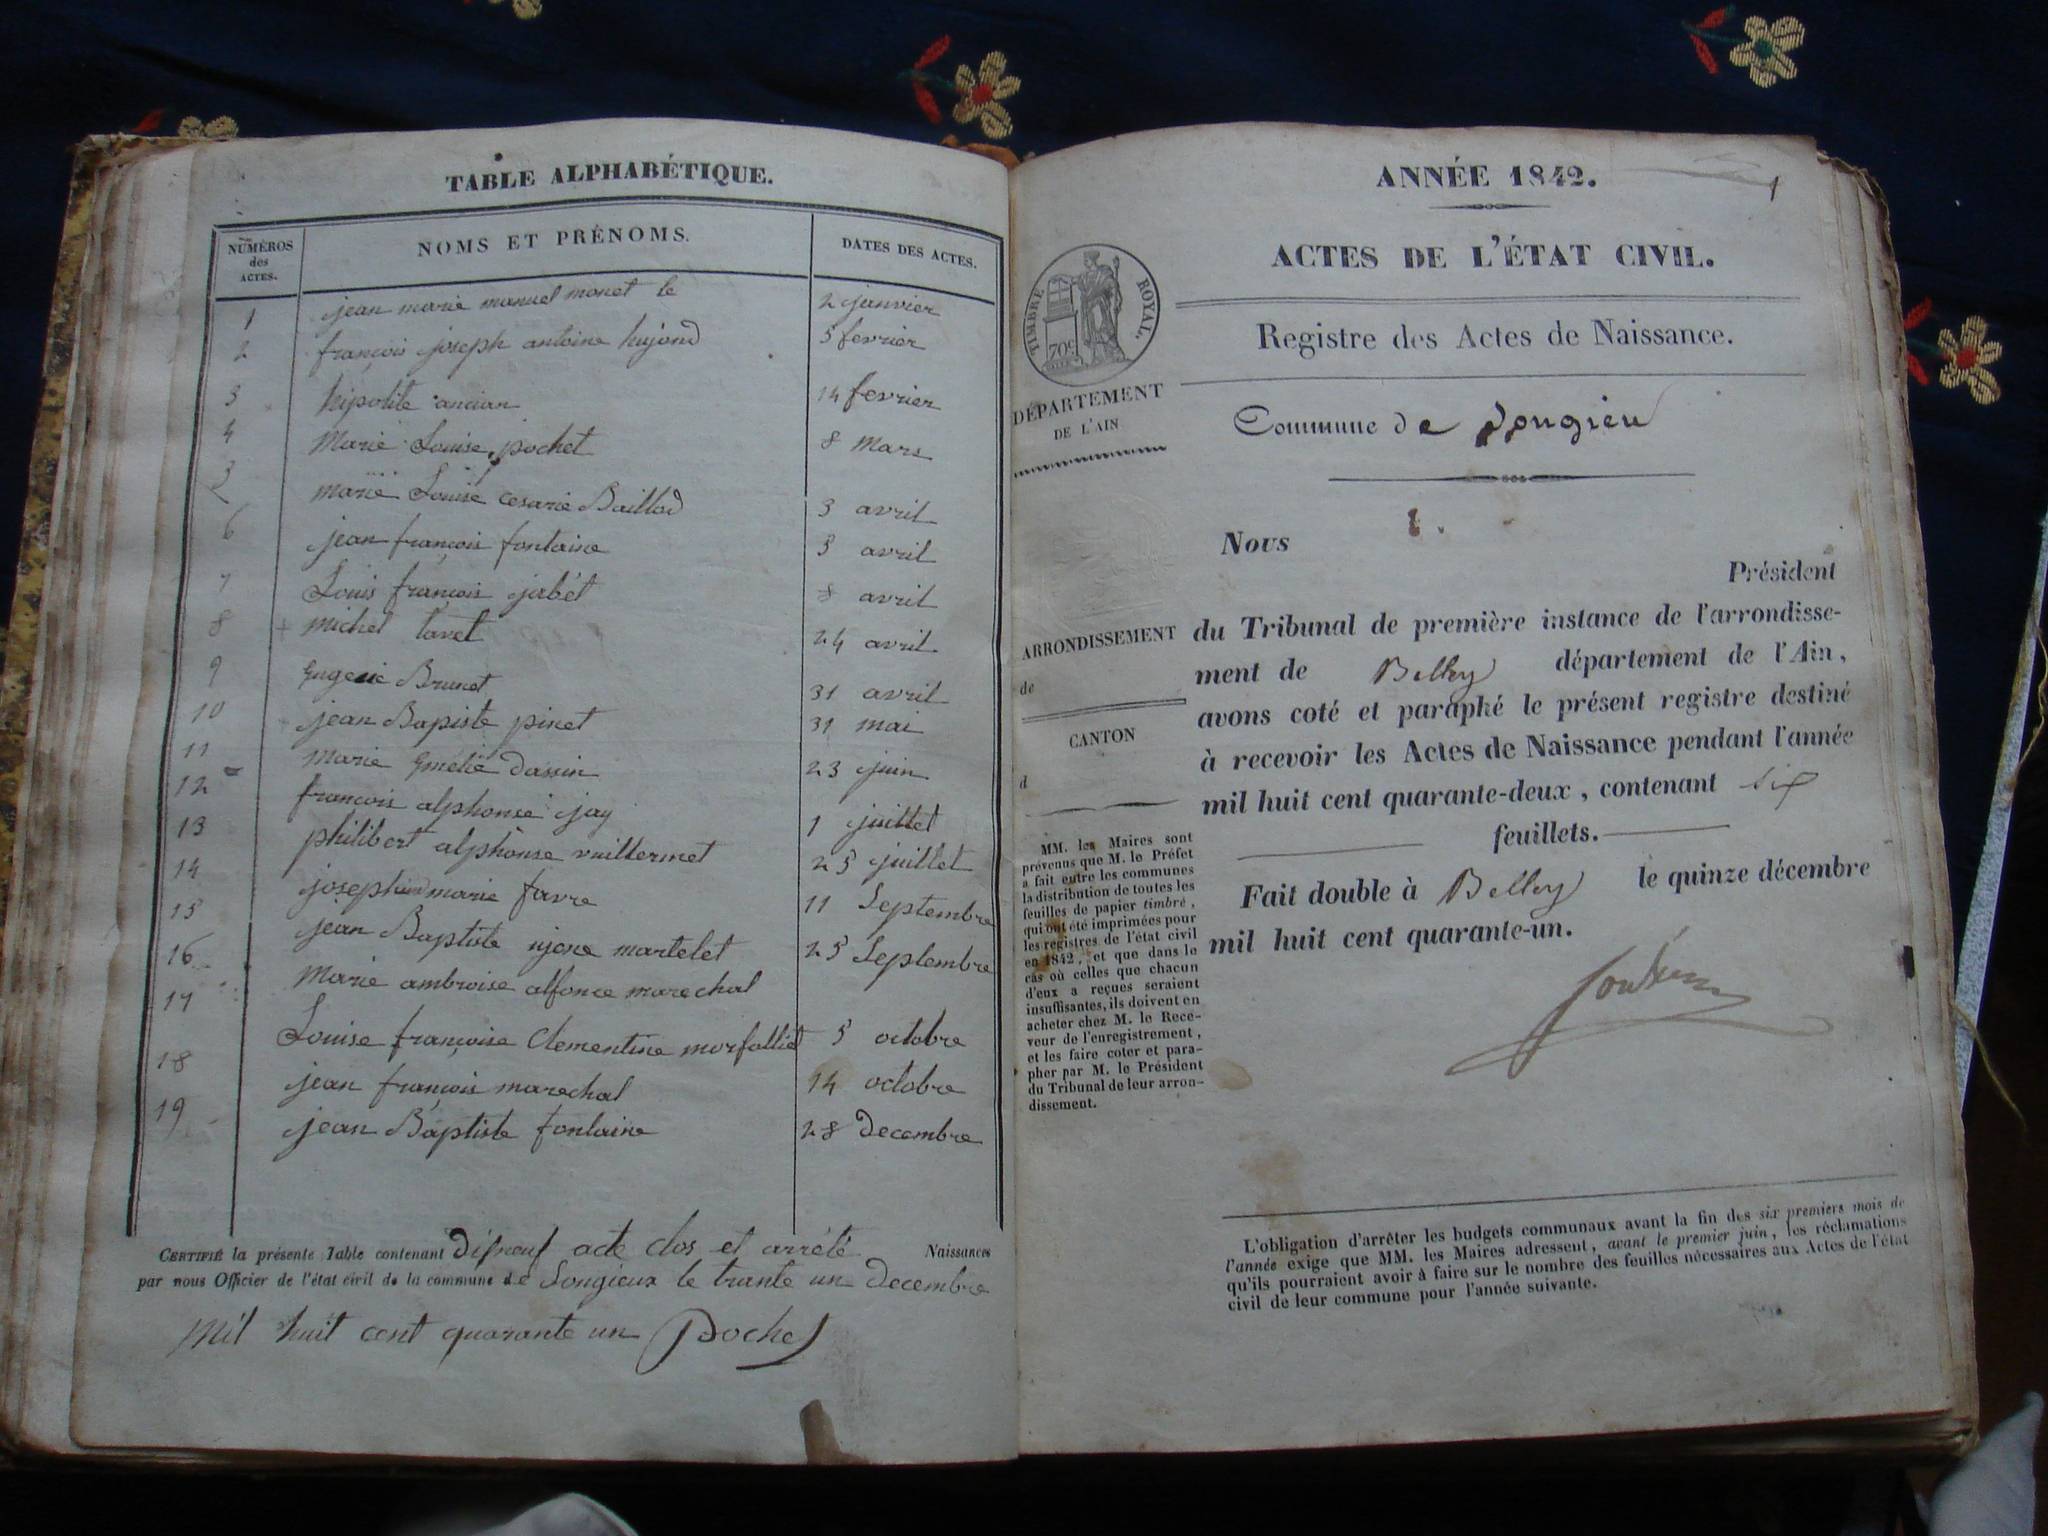 TABLE ALPHABÉTIQUE.
NUMÉROS des ACTES. NOMS ET PRÉNOMS. DATES DES ACTES.
1 jean marie manuel monet le 2 janvier
2 françois joseph antoine hujond 5 fevrier
3 hipolite ancian 14 fevrier
4 Marie Louise pochet 8 Mars
5 marie Louise cesarie Baillod 3 avril
6 jean françois fontaine 5 avril
7 Louis françois jabét 8 avril
8 michel tavel 24 avril
9 Eugenie Brunet 31 avril
10 jean Bapiste pinet 31 mai
11 Marie Emélie dassin 23 juin
12 francois alphonce jay 1 juillet
13 philibert alphonse vuillermet 25 juillet
14 joseph marie favre 11 Septembre
15 jean Baptiste martelet 25 Septembre
16 Marie ambroise alfonce marechal
17 Louise françoise Clementine morfalliet 5 octobre
18 jean françois marechal 14 octobre
19 jean Baptiste fontaine 28 decembre
CERTIFIÉ la présente Table contenant Difneuf acte clos et arrété Naissances
par nous Officier de l'état civil de la commune de Songieux le trante un Decembre
Mil huit cent quarante un Pochet
ANNÉE 1842.
1
ACTES DE L'ÉTAT CIVIL.
TIMBRE ROYAL.
70c
Registre des Actes de Naissance.
DÉPARTEMENT
DE L'AIN
Commune de Songieu
Nous
Président
ARRONDISSEMENT
de
CANTON
d
du Tribunal de première instance de l'arrondisse-
ment de Belley département de l'Ain,
avons coté et paraphé le présent registre destiné
à recevoir les Actes de Naissance pendant l'année
mil huit cent quarante-deux, contenant six
feuillets.
Fait double à Belley le quinze décembre
mil huit cent quarante-un.
MM. les Maires sont
prévenus que M. le Préfet
a fait entre les communes
la distribution de toutes les
feuilles de papier timbré,
qui ont été imprimées pour
les registres de l'état civil
en 1842, et que dans le
cas où celles que chacun
d'eux a reçues seraient
insuffisantes, ils doivent en
acheter chez M. le Rece-
veur de l'enregistrement,
et les faire coter et para-
pher par M. le Président
du Tribunal de leur arron-
dissement.
L'obligation d'arrêter les budgets communaux avant la fin des six premiers mois de
l'année exige que MM. les Maires adressent, avant le premier juin, les réclamations
qu'ils pourraient avoir à faire sur le nombre des feuilles nécessaires aux Actes de l'état
civil de leur commune pour l'année suivante.